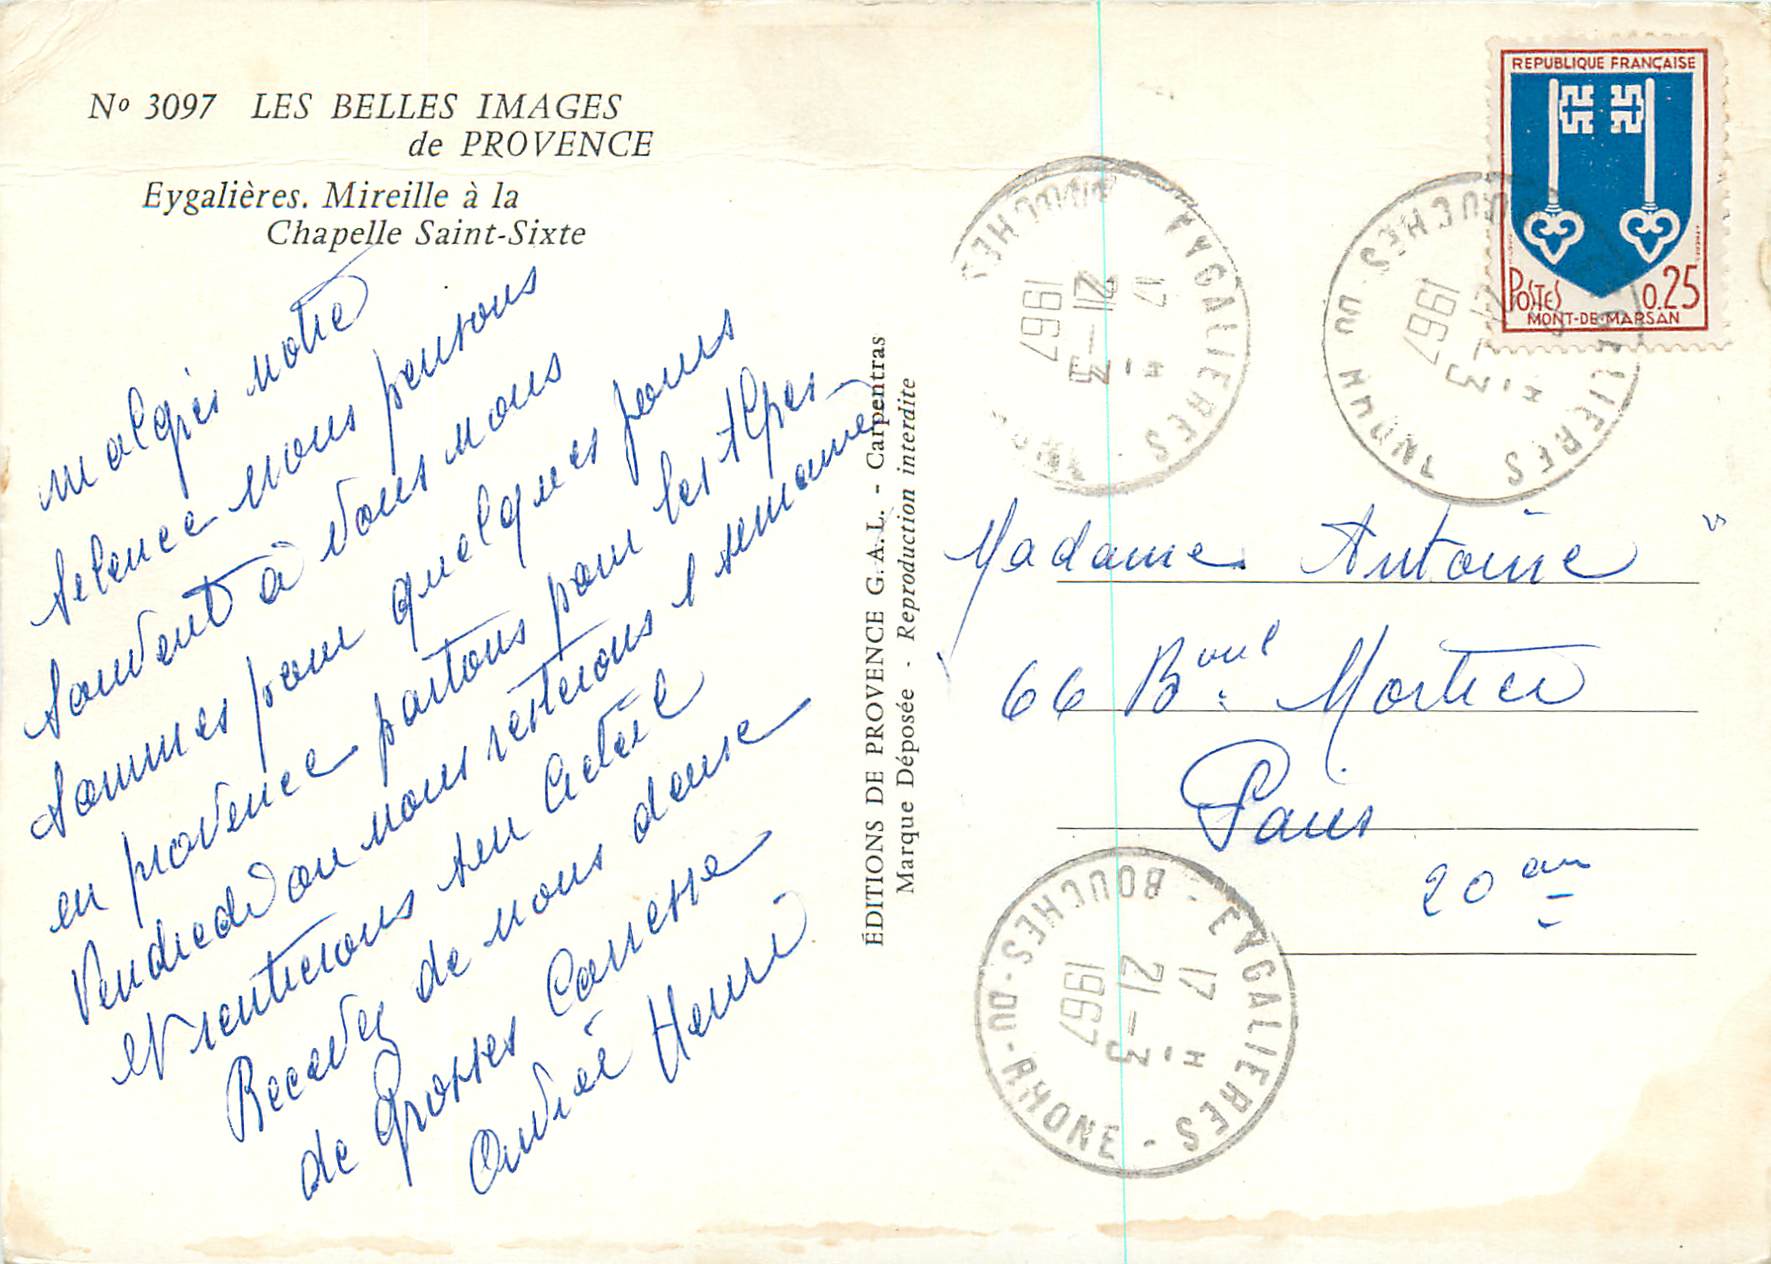 No 3097 LES BELLES IMAGES
de PROVENCE
Eygalières. Mireille à la
Chapelle Saint-Sixte
malgrés notre
selence nous pensons
souvent à vous nous
sommes pour quelques jours
en provence partons pour les Alpes
Vendredi ou nous resterons 2 semaines
et rentrerons sur
Recevez de nous deuse
de Grosses Caresse
Henri
ÉDITIONS DE PROVENCE G.A.L. - Carpentras
Marque Déposée - Reproduction interdite
REPUBLIQUE FRANÇAISE
POSTES 0.25
MONT-DE-MARSAN
EYGALIERES - BOUCHES-DU-RHONE
17 H
21-3
1967
EYGALIERES - BOUCHES-DU-RHONE
17 H
21-3
1967
Madame Antoine
66 Boul Mortier
Paris
20 em
EYGALIERES - BOUCHES-DU-RHONE
17 H
21-3
1967